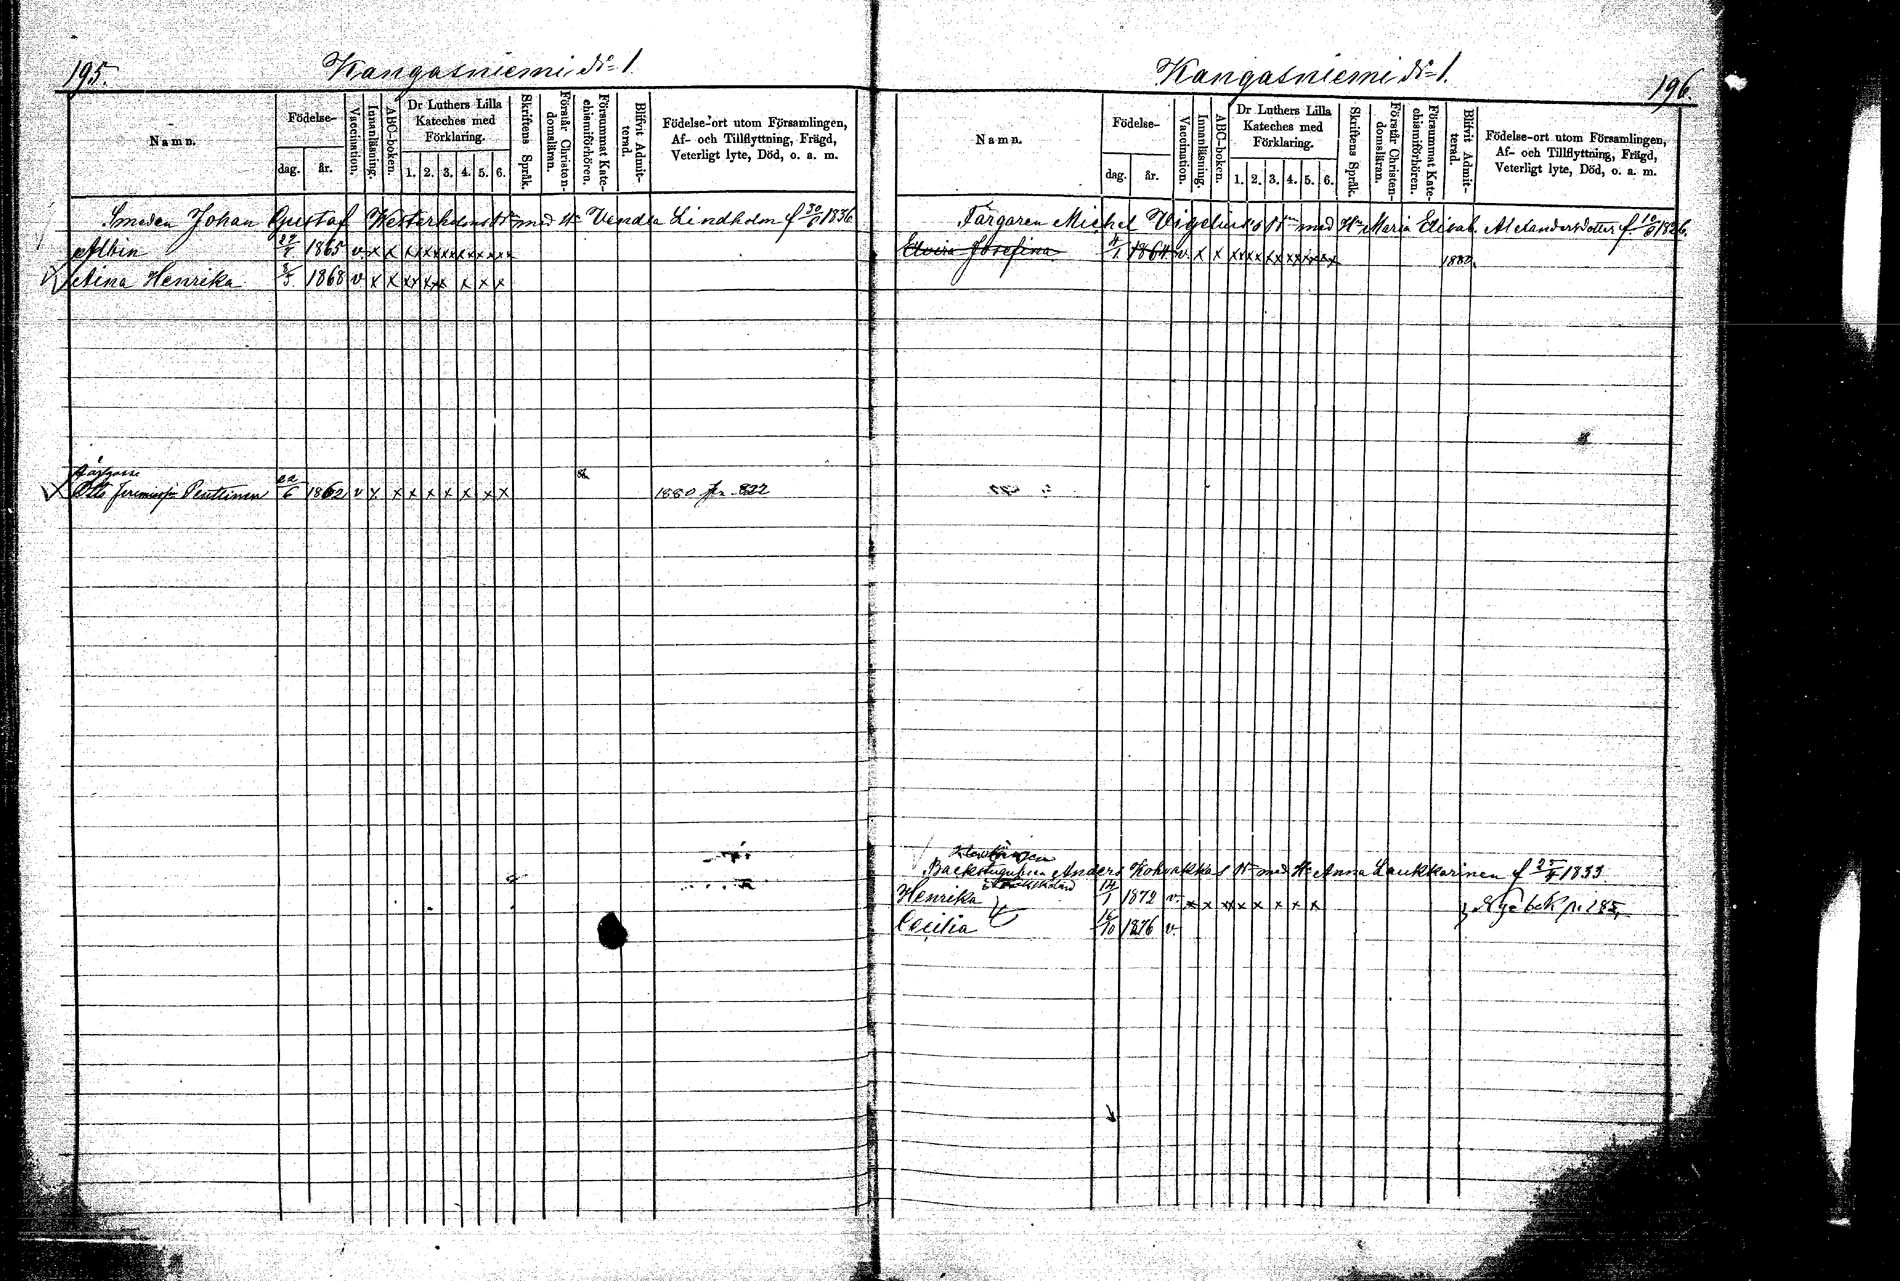 195.
Kangasniemi N:o 1.
Namn.
Födelse-
dag.
år.
Vaccination.
Innanläsning.
ABC-boken.
Dr Luthers Lilla
Kateches med
Förklaring.
1. 2. 3. 4. 5. 6.
Skriftens Språk.
Förstår Christen-
domsläran.
Försummat Kate-
chismiförhören.
Blifvit Admit-
terad.
Födelse-ort utom Församlingen,
Af- och Tillflyttning, Frägd,
Veterligt lyte, Död, o. a. m.
Smeden Johan Gustaf Westerholms med H: Vendla Lindholm f 30/6 1836
Albin 1865 v. x x x x x x x x x x x x x x
Aina Henrika 1868 v x x x x x x x x x x
Otto Penttinen 22/6 1862 v x x x x x x x x 1880 fr. 822
196.
Kangasniemi N:o 1.
Namn.
Födelse-
dag.
år.
Vaccination.
Innanläsning.
ABC-boken.
Dr Luthers Lilla
Kateches med
Förklaring.
1. 2. 3. 4. 5. 6.
Skriftens Språk.
Förstår Christen-
domsläran.
Försummat Kate-
chismiförhören.
Blifvit Admit-
terad.
Födelse-ort utom Församlingen,
Af- och Tillflyttning, Frägd,
Veterligt lyte, Död, o. a. m.
Färgaren Michel Vigelius's med H: Maria Elisab. Alexandersdotter f. 10/6 1826.
Josefina 4/1 1864 v. x x x x x x x x x x x x x x 1880.
Backstugusven Anders Kokvakkas med H: Anna Laukkarinen f 1833
Henrika 1872 v. x x x x x x x x
Cecilia 16/10 1876 v.
Nya bok p. 185.